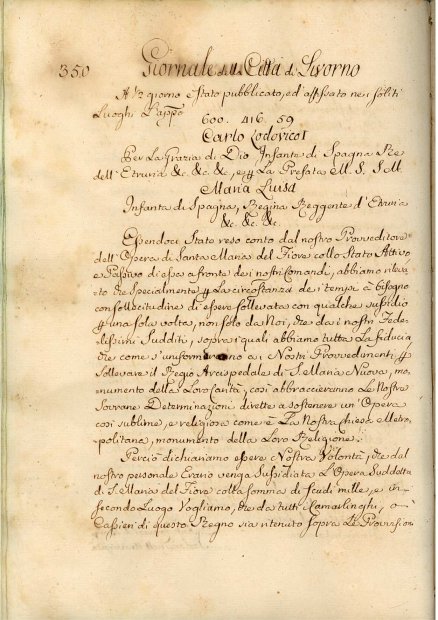 350 Giornale della Città di Livorno
A 12 giorno è stato pubblicato, ed' affissato nei soliti
Luoghi L'appo
600. 416. 59
Carlo Lodovico I
Per La Grazia di Dio Infante di Spagna Re
dell' Etruria &c. &c. &c., e La Prefata M. S. S. M.
Maria Luisa
Infanta di Spagna, Regina Reggente d'Etruria
&c. &c. &c.
Essendoci Stato reso conto dal nostro Provveditore
dell' Opera di Santa Maria del Fiore collo Stato Attivo
e Passivo di essa a fronte dei nostri Comandi, abbiamo rileva-
to che specialmente La circostanza dei tempi à bisogno
con sollecitudine di essere sollevata con qualche sussidio
una sola volta, non solo da Noi, che da i nostri Fede-
lissimi Sudditi, sopra i quali abbiamo tutta La fiducia
che come s'uniformarono ai Nostri Provvedimenti,
Sollevare il Regio Arcispedale di S. Maria Nuova, mo-
numento della Loro Carità, così abbracceranno Le Nostre
Sovrane Determinazioni dirette a sostenere un' Opera
così sublime, e religiosa come è La Nostra Chiesa Metro-
politana, monumento della Loro Religione.
Perciò dichiariamo essere Nostra Volontà, che dal
nostro personale Erario venga Sussidiata L'Opera Suddetta
di S. Maria del Fiore colla somma di Scudi mille, e in
secondo Luogo Vogliamo, che da tutti i Camarlinghi, o
Cassieri di questo Regno sia ritenuto sopra Le Provvisioni